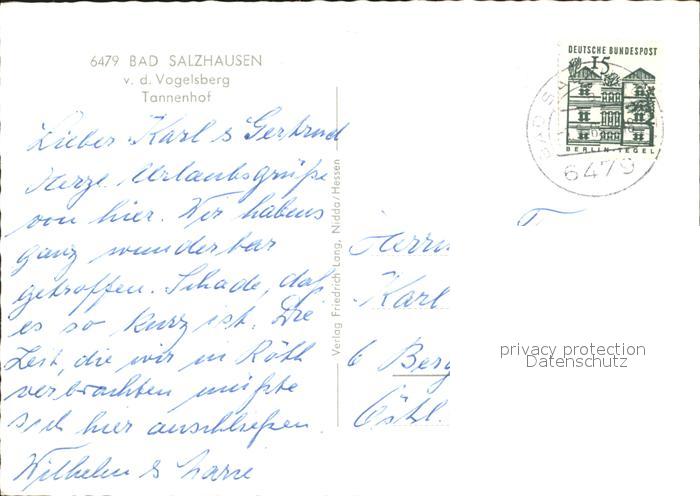 6479 BAD SALZHAUSEN
v. d. Vogelsberg
Tannenhof
DEUTSCHE BUNDESPOST
15
BERLIN-TEGEL
BAD SA
6479
Lieber Karl & Gertrud
Herzl. Urlaubsgrüße
von hier. Wir habens
ganz wunderbar
getroffen. Schade, daß
es so kurz ist. Die
Zeit, die wir in Röth
verbrachten müßte
sich hier anschließen.
Wilhelm &
Verlag Friedrich Lang, Nidda/Hessen
Herrn
Karl
6 Berg
privacy protection
Datenschutz